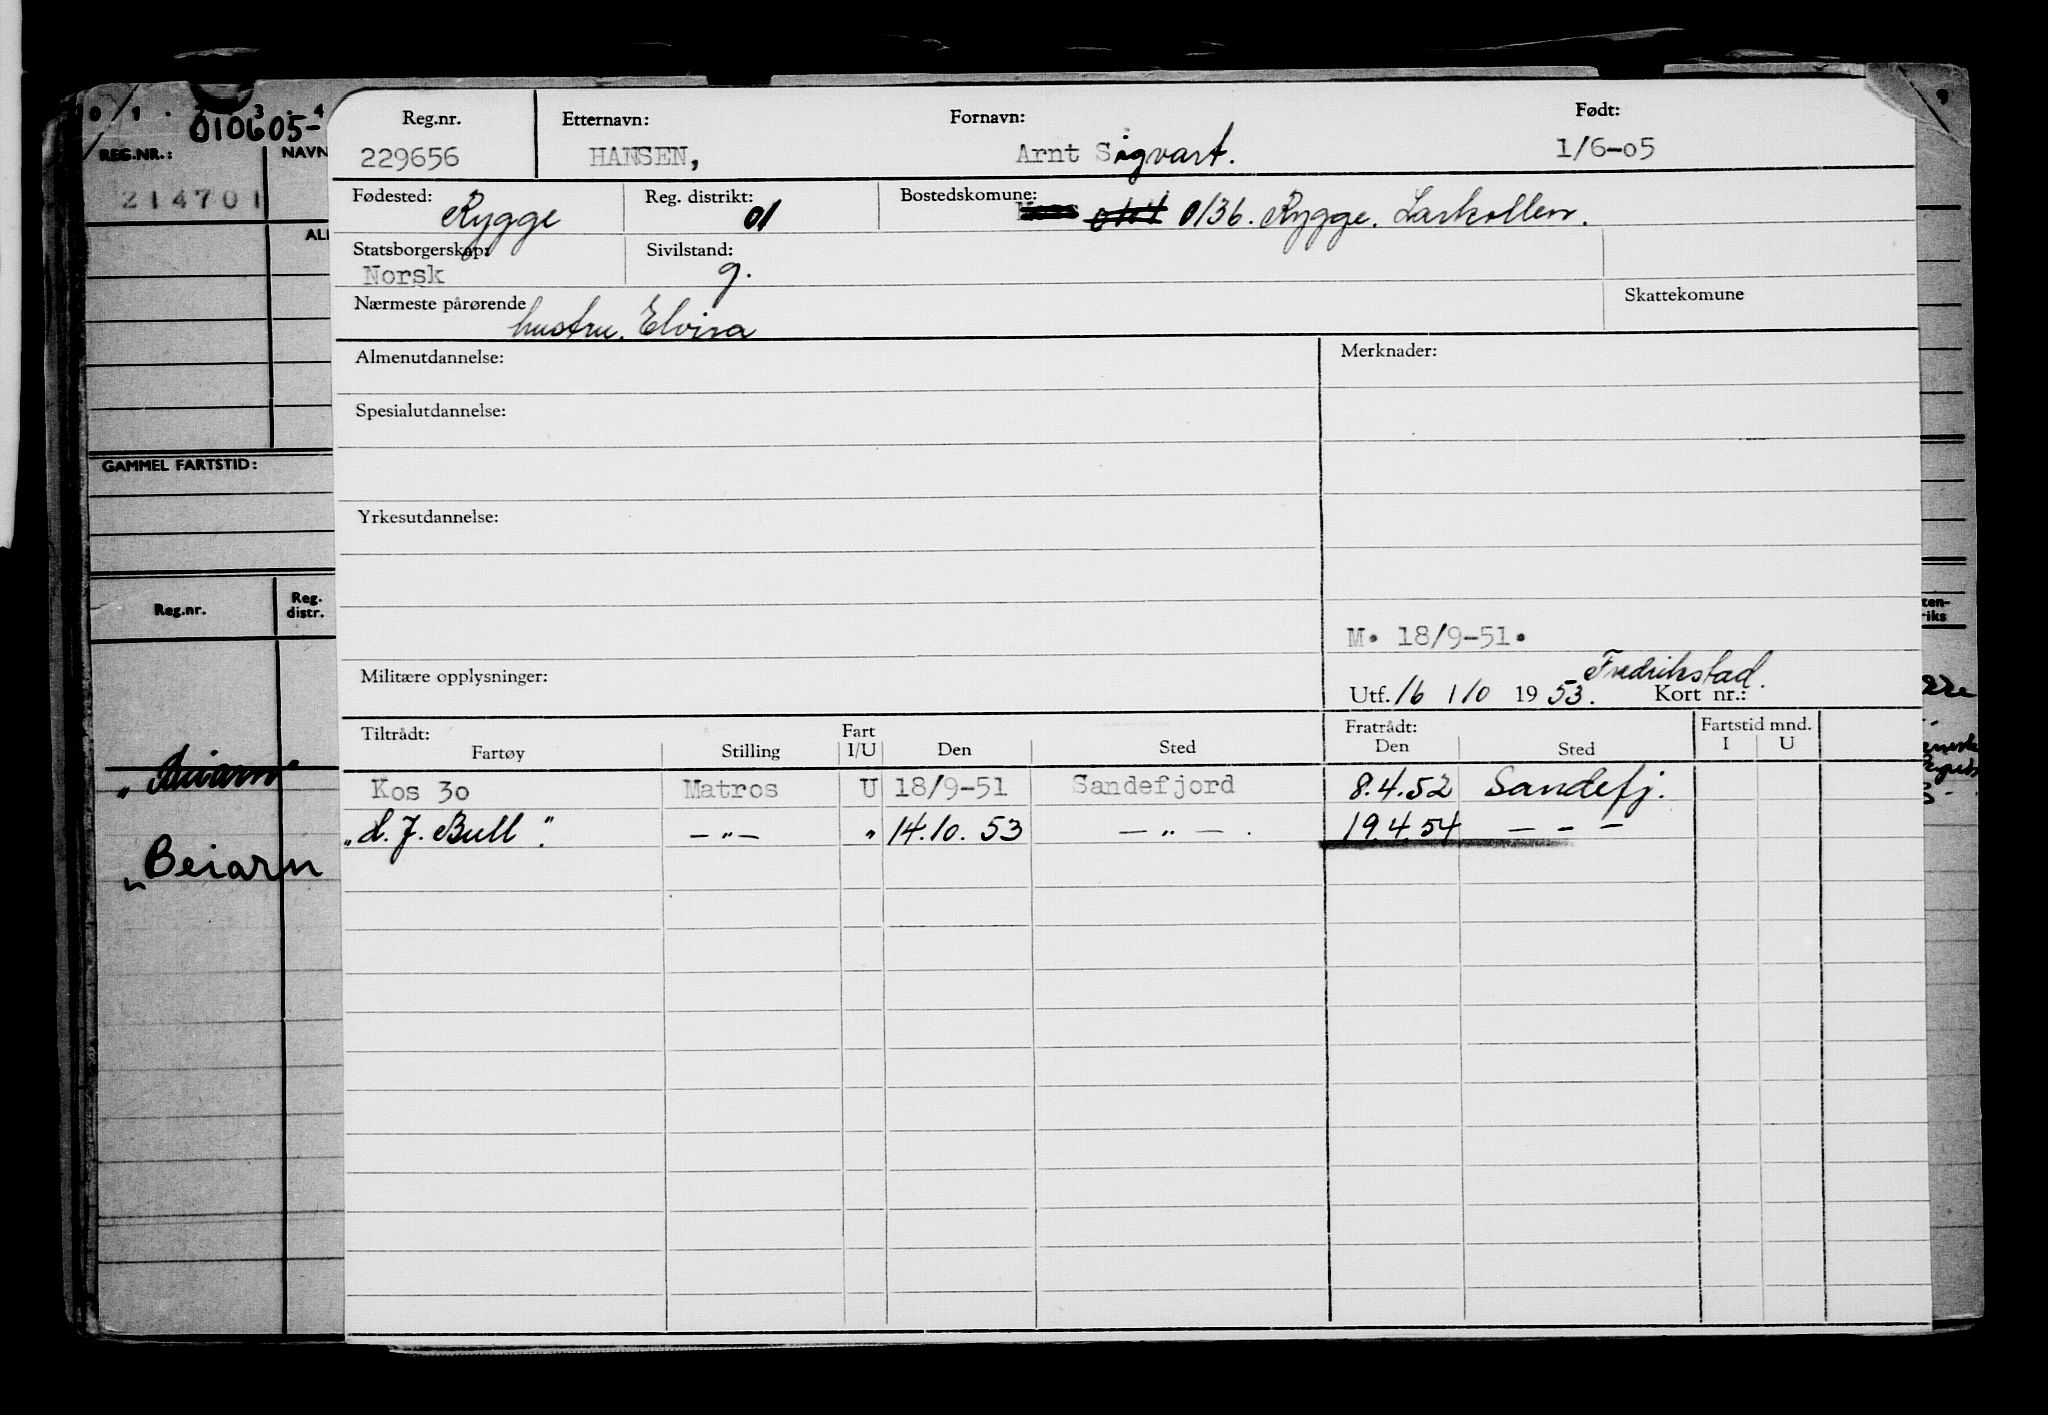 0 1 . 3 . 4
010605-
REG.NR.: NAVN
214701
AL
GAMMEL FARTSTID:
Reg.nr. Reg. distr.
"Beiarn
Reg.nr. Etternavn: Fornavn: Født:
229656 HANSEN, Arnt Sigvart. 1/6-05
Fødested: Rygge Reg. distrikt: 01 Bostedskomune: 0136. Rygge. Larkollen.
Statsborgerskap: Sivilstand:
Norsk g.
Nærmeste pårørende Skattekomune
hustru. Elvira
Almenutdannelse: Merknader:
Spesialutdannelse:
Yrkesutdannelse:
M. 18/9-51.
Militære opplysninger: Fredrikstad.
Utf. 16 / 10 1953. Kort nr.:
Tiltrådt: Fart Fratrådt: Fartstid mnd.
Fartøy Stilling I/U Den Sted Den Sted I U
Kos 30 Matros U 18/9-51 Sandefjord 8.4.52 Sandefj.
"d. J. Bull". — " — " 14.10.53 — " — . 19.4.54 — – —
9
ten-
riks